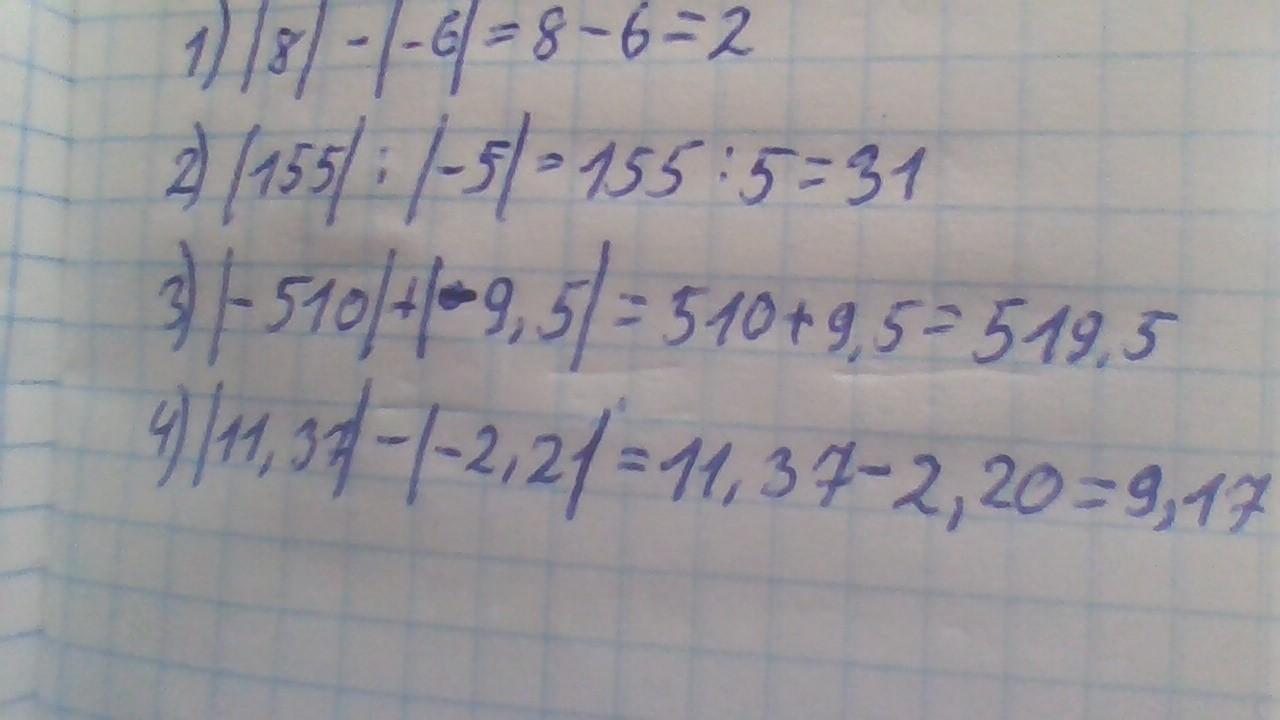 1) |8| - |-6| = 8 - 6 = 2
2) |155| : |-5| = 155 : 5 = 31
3) |-510| + |-9,5| = 510 + 9,5 = 519,5
4) |11,37| - |-2,2| = 11,37 - 2,20 = 9,17